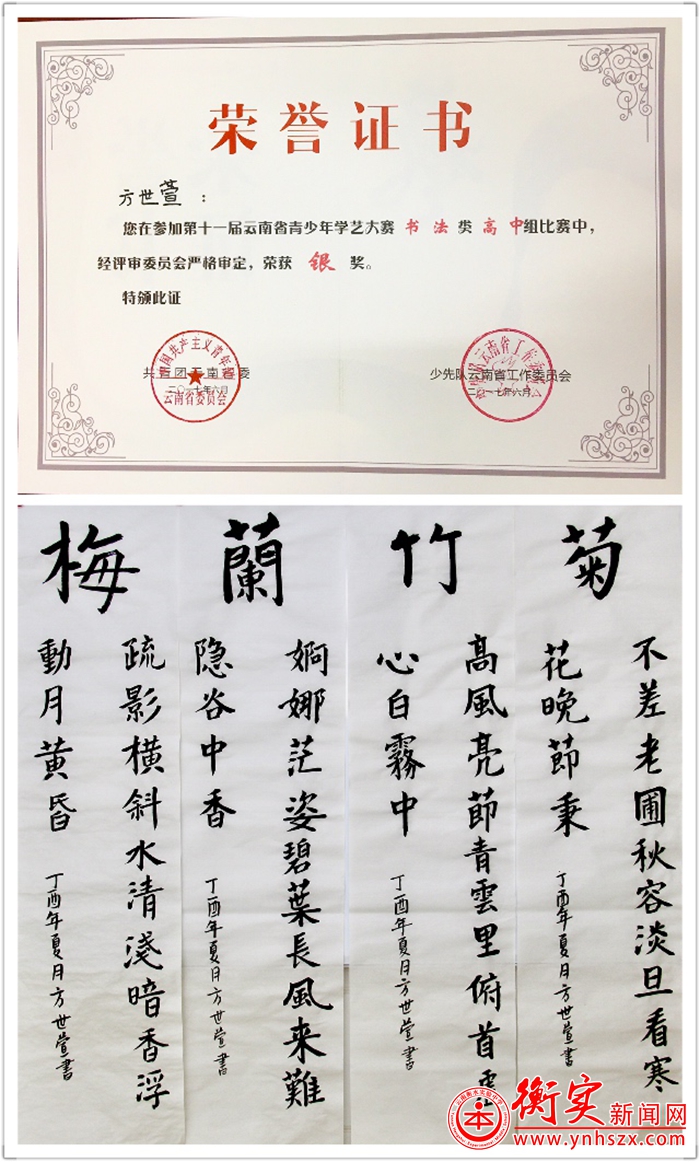 荣誉证书
方世萱：
您在参加第十一届云南省青少年学艺大赛 书法 类 高中 组比赛中，
经评审委员会严格审定，荣获 银 奖。
特颁此证
共青团云南省委
二〇一七年六月
云南省委员会
少先队云南省工作委员会
二〇一七年六月
梅
疏影橫斜水清淺暗香浮
動月黄昏
丁酉年夏月方世萱書
蘭
婀娜茫姿碧葉長風来難
隐谷中香
丁酉年夏月方世萱書
竹
高風亮節青雲里俯首
心白霧中
丁酉年夏月方世萱書
菊
不差老圃秋容淡旦看寒
花晚節秉
丁酉年夏月方世萱書
衡实新闻网
www.ynhszx.com